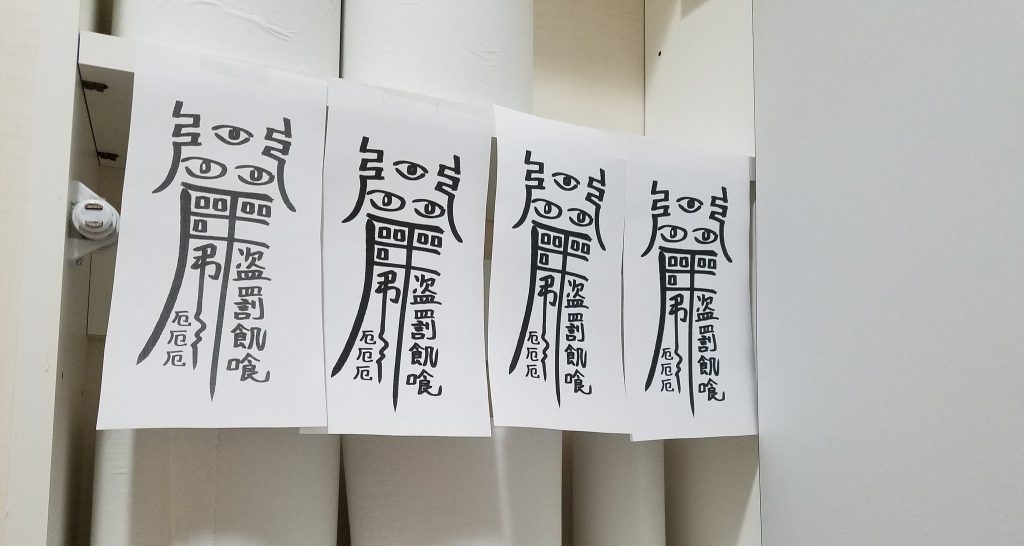 盗罰飢喰
弔
厄厄厄
盗罰飢喰
弔
厄厄厄
盗罰飢喰
弔
厄厄厄
盗罰飢喰
弔
厄厄厄